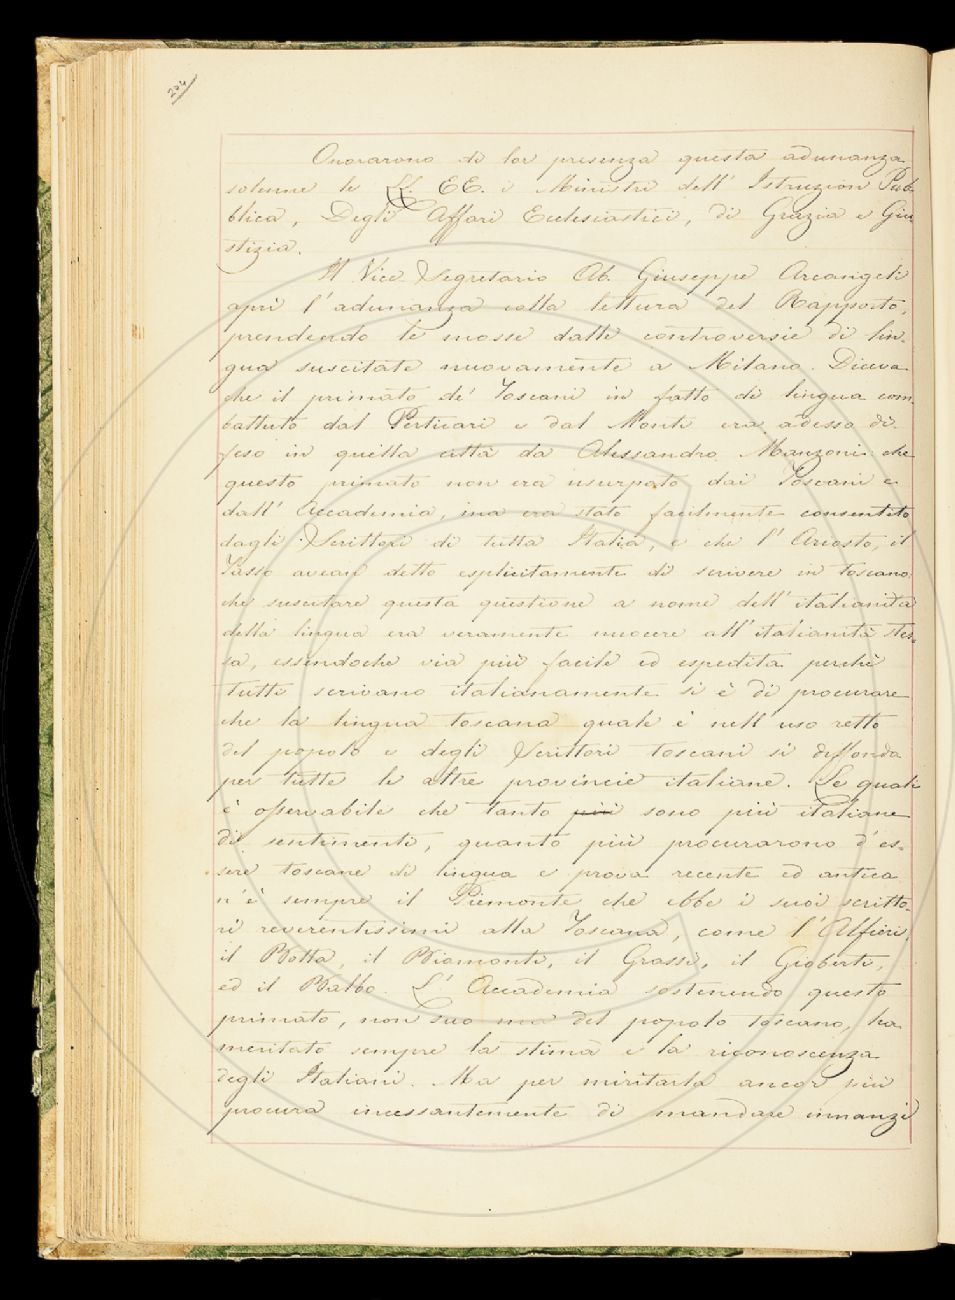 204
Onorarono di lor presenza questa adunanza
solenne le LL. EE. i Ministri dell' Istruzion Pub-
blica, Degli Affari Ecclesiastici, di Grazia e Giu
stizia.
Il Vice Segretario Ab. Giuseppe Arcangeli
aprì l'adunanza colla lettura del Rapporto,
prendendo le mosse dalle controversie di lin-
gua suscitate nuovamente a Milano. Diceva
che il primato de' Toscani in fatto di lingua com-
battuto dal Perticari e dal Monti era adesso di-
feso in quella città da Alessandro Manzoni: che
questo primato non era usurpato dai Toscani e
dall' Accademia, ma era stato facilmente consentito
dagli Scrittori di tutta Italia, e che l' Ariosto, il
Tasso avean detto esplicitamente di scrivere in toscano;
che suscitare questa questione a nome dell' italianità
della lingua era veramente nuocere all' italianità stes-
sa, essendoche via più facile ed espedita perchè
tutti scrivano italianamente si è di procurare
che la lingua toscana quale è nell' uso retto
del popolo e degli Scrittori toscani si diffonda
per tutte le altre provincie italiane. Le quali
è osservabile che tanto più sono più italiane
di sentimenti, quanto più procurarono d' es-
sere toscane di lingua e prova recente ed antica
n' è sempre il Piemonte che ebbe i suoi scritto-
ri reverentissimi alla Toscana, come l' Alfieri,
il Botta, il Biamonti, il Grassi, il Gioberti,
ed il Balbo. L' Accademia sostenendo questo
primato, non suo ma del popolo toscano, ha
meritato sempre la stima e la riconoscenza
degli Italiani. Ma per meritarla ancor più
procura incessantemente di mandare innanzi